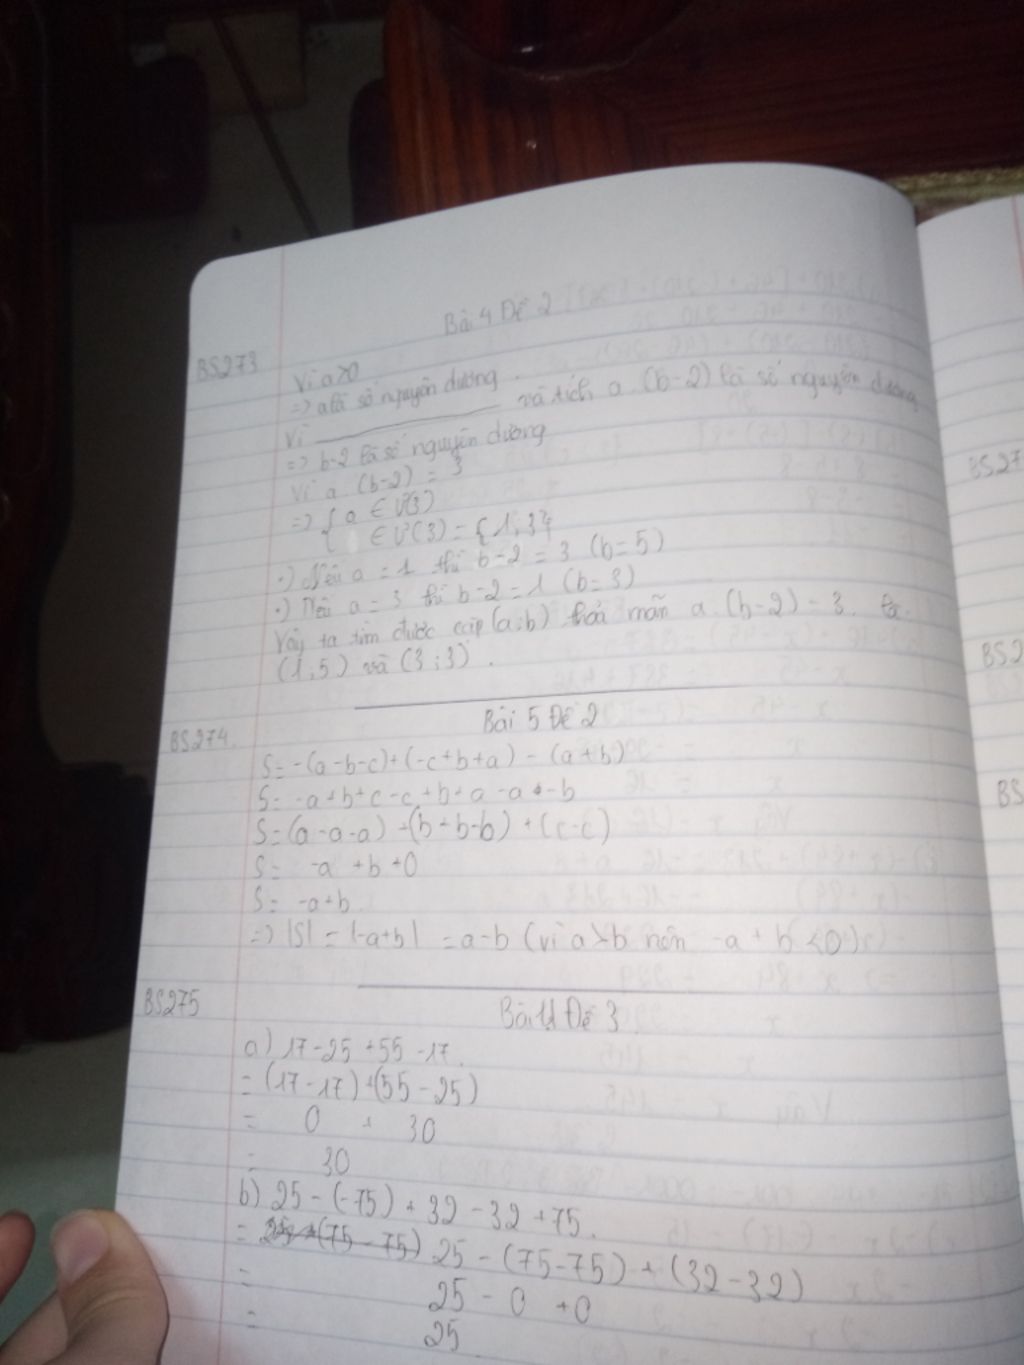 Bài 4 Đề 2
BS273
Vì a>0
=> a là số nguyên dương.
Vì ——— và tích a. (b-2) là số nguyên dương
=> b-2 là số nguyên dương
Vì a. (b-2) = 3
=> { a ∈ Ư(3)
{ ∈ Ư(3) = {1; 3}
.) Nếu a = 1 thì b-2 = 3 (b=5)
.) Nếu a = 3 thì b-2 = 1 (b=3)
Vậy ta tìm được cặp (a;b) thoả mãn a. (b-2) = 3. là
(1;5) và (3;3).
Bài 5 Đề 2
BS274.
S= -(a-b-c)+(-c+b+a) - (a+b)
S= -a+b+c-c+b+a-a-b
S=(a-a-a)+(b+b-b)+(c-c)
S= -a +b +0
S= -a+b.
=> |S| = |-a+b| = a-b (vì a>b nên -a + b <0)
BS275
Bài 1 Đề 3
a) 17-25 +55 -17.
= (17-17)+(55-25)
= 0 + 30
= 30
b) 25-(-75) + 32-32+75.
= 25 - (75-75) + (32-32)
= 25 - 0 +0
= 25
BS27
BS2
BS